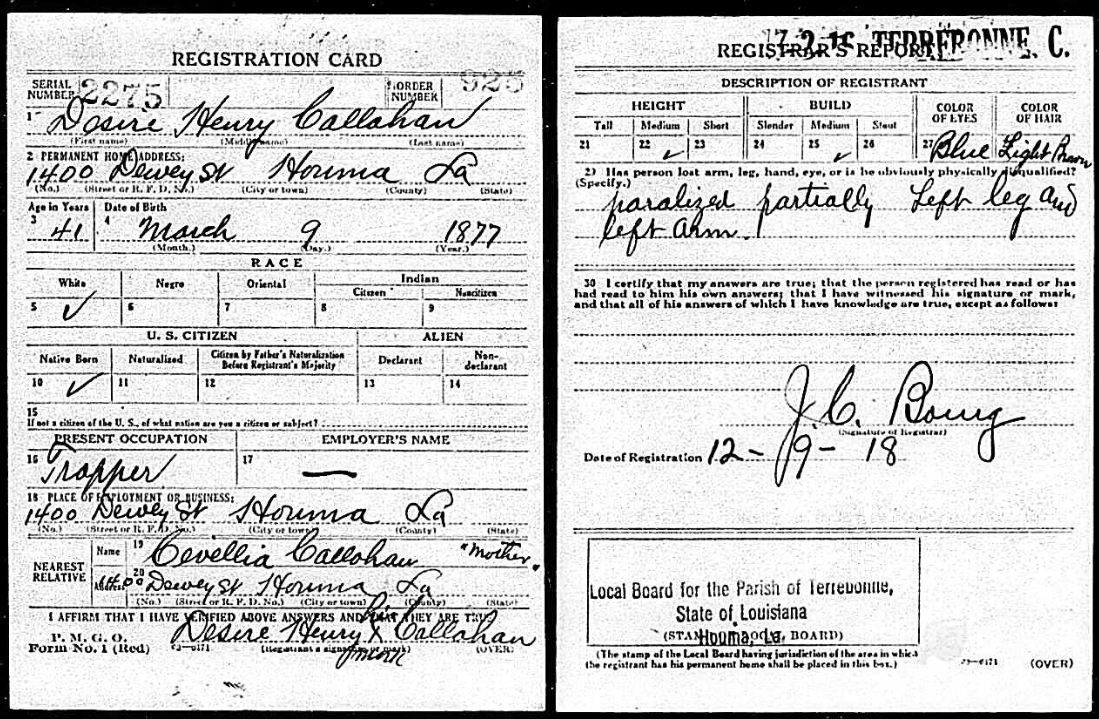 REGISTRATION CARD
SERIAL NUMBER 2275 ORDER NUMBER 925
1 Desire Henry Callahan
(First name) (Middle name) (Last name)
2 PERMANENT HOME ADDRESS:
1400 Dewey St Houma La
(No.) (Street or R. F. D. No.) (City or town) (County) (State)
Age in Years Date of Birth
3 41 4 March 9 1877
(Month.) (Day.) (Year.)
RACE
White Negro Oriental Indian
Citizen Noncitizen
5 ✓ 6 7 8 9
U. S. CITIZEN ALIEN
Native Born Naturalized Citizen by Father's Naturalization Before Registrant's Majority Declarant Non-declarant
10 ✓ 11 12 13 14
15
If not a citizen of the U. S., of what nation are you a citizen or subject?
PRESENT OCCUPATION EMPLOYER'S NAME
16 Trapper 17 —
18 PLACE OF EMPLOYMENT OR BUSINESS:
1400 Dewey St Houma La
(No.) (Street or R. F. D. No.) (City or town) (County) (State)
NEAREST RELATIVE
Name 19 Cevellia Callohan "Mother"
Address 20 1400 Dewey St Houma La
(No.) (Street or R. F. D. No.) (City or town) (County) (State)
I AFFIRM THAT I HAVE VERIFIED ABOVE ANSWERS AND THAT THEY ARE TRUE
P. M. G. O.
Form No. 1 (Red)
his
Desire Henry X Callahan
(Registrant's signature or mark) (OVER)
mark
17-2-16 TERREBONNE. C.
REGISTRAR'S REPORT
DESCRIPTION OF REGISTRANT
HEIGHT BUILD COLOR OF EYES COLOR OF HAIR
Tall Medium Short Slender Medium Stout
21 22 ✓ 23 24 25 ✓ 26 27 Blue Light Brown
29 Has person lost arm, leg, hand, eye, or is he obviously physically disqualified?
(Specify.)
paralized partially Left leg and
left arm.
30 I certify that my answers are true; that the person registered has read or has
had read to him his own answers; that I have witnessed his signature or mark,
and that all of his answers of which I have knowledge are true, except as follows:
J. C. Bourg
(Signature of Registrar)
Date of Registration 12-9-18
Local Board for the Parish of Terrebonne,
State of Louisiana
Houma, La.
(STAMP OF LOCAL BOARD)
(The stamp of the Local Board having jurisdiction of the area in which
the registrant has his permanent home shall be placed in this box.)
(OVER)